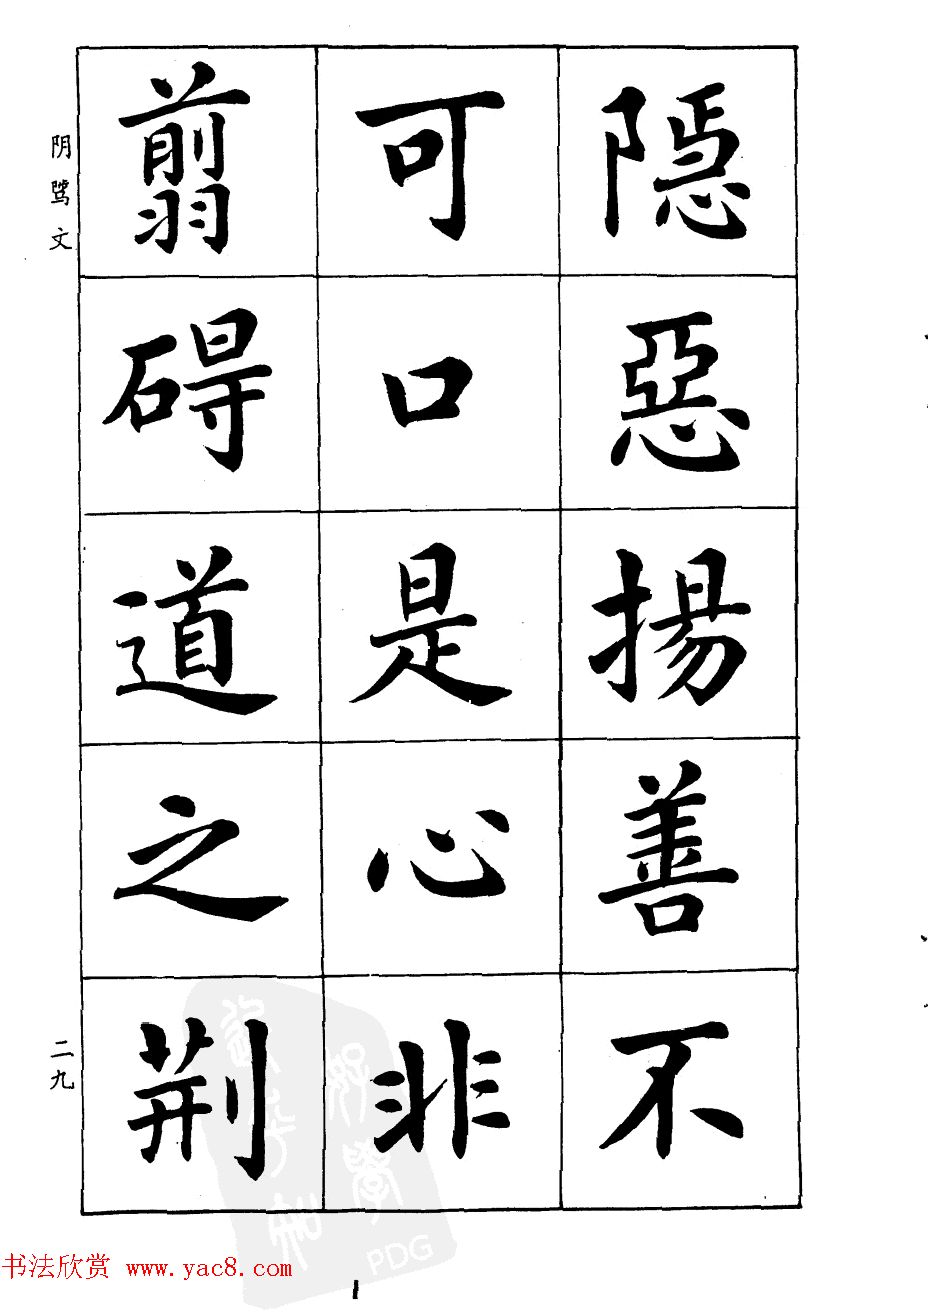 隱惡揚善不
可口是心非
翦碍道之荆
阴骘文
二九
PDG
书法欣赏 www.yac8.com